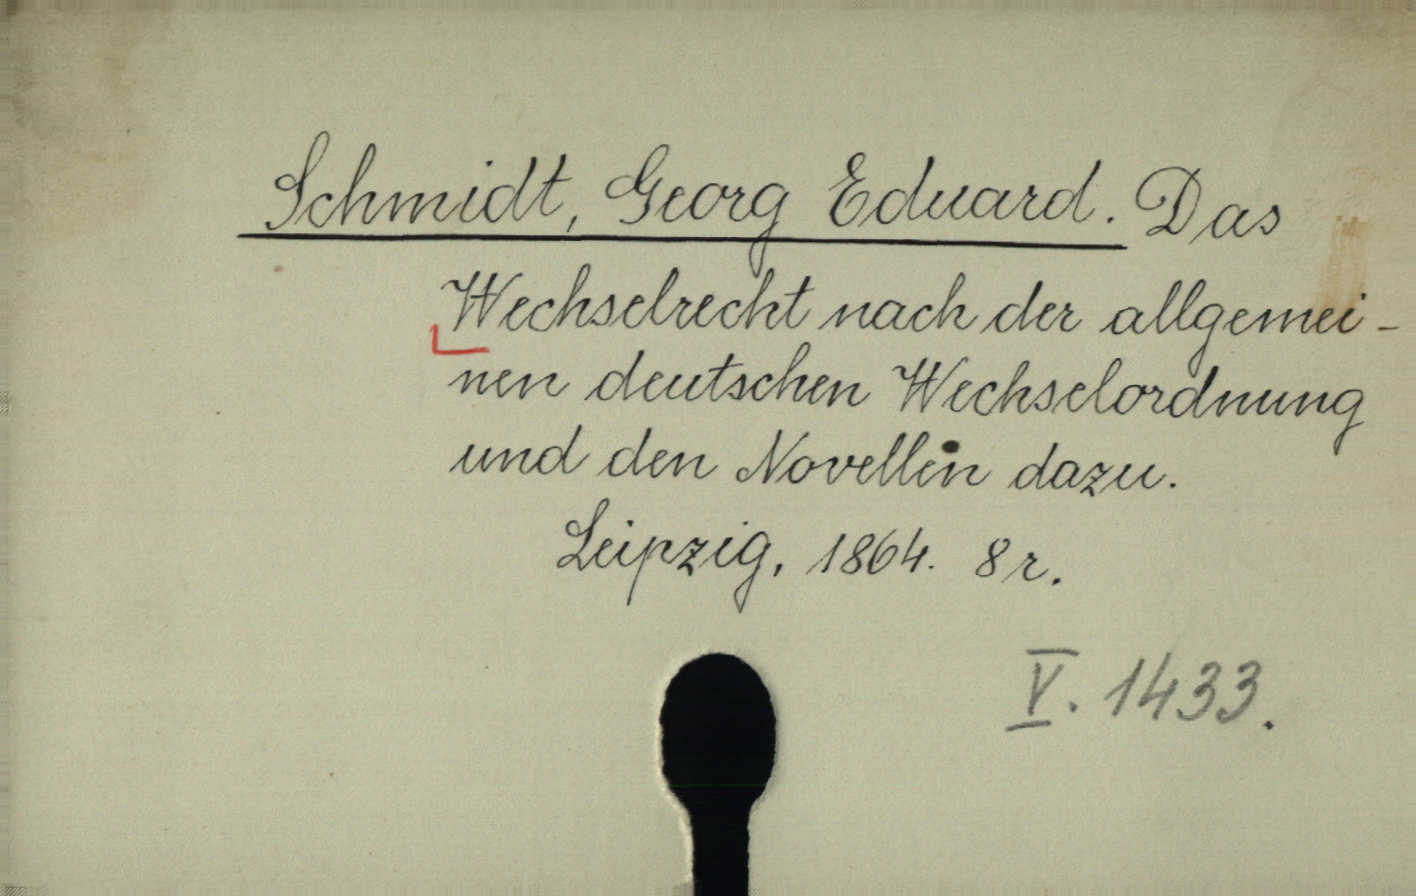 Schmidt, Georg Eduard. Das
Wechselrecht nach der allgemei-
nen deutschen Wechselordnung
und den Novellen dazu.
Leipzig, 1864. 8r.
V. 1433.